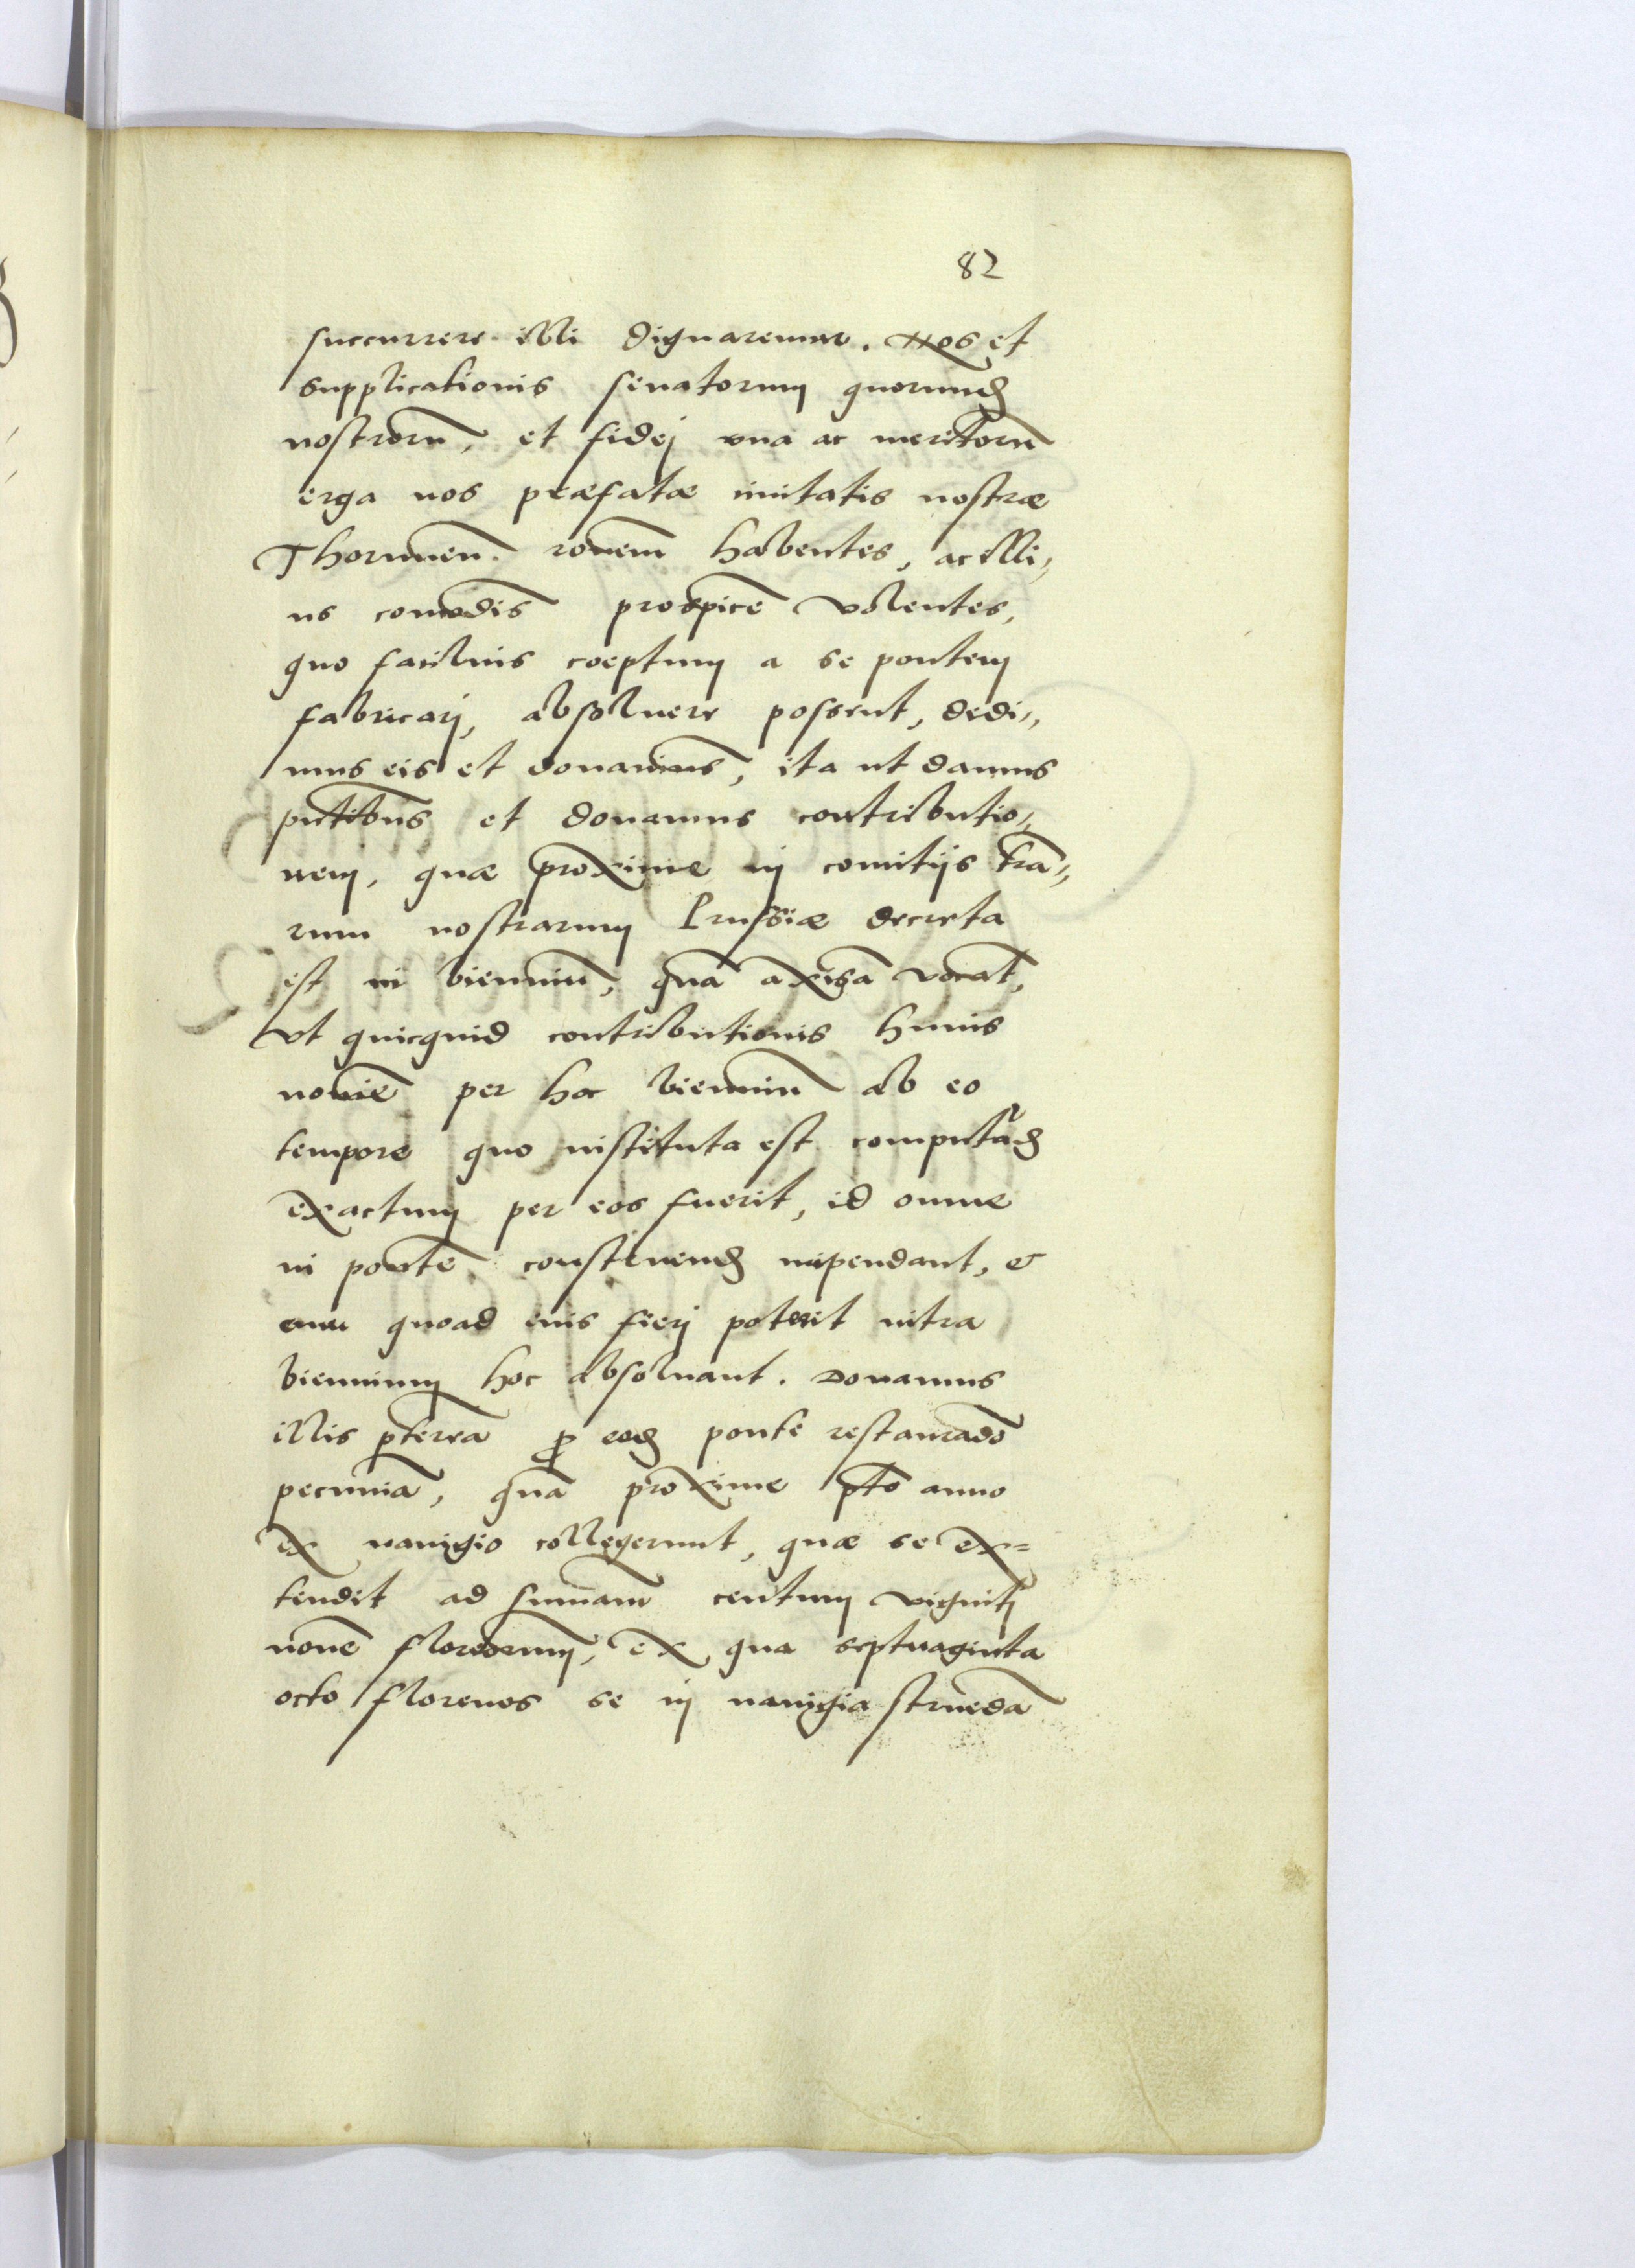 82
succurrere illi dignaremur. Nos et
supplicationis senatorum quorund
nostrorū, et fidej una ac meritorū
erga nos præfatæ civitatis nostræ
Thorunen. rōnem habentes, ac illi,,
us comōdis prospicē volentes,
quo facilius coeptum a se pontem
fabricarj, absoluere possent, dedi,,
mus eis et donavimus, ita ut damus
pn̄tibus et donamus contributio,,
nem, quæ proxime in comitijs trā,,
rum nostrarum Prussiæ decreta
est in bienniū, quā axisā vocāt,
ut quicquid contributionis huius
nomīe per hoc bienniū ab eo
tempore quo instituta est computād
exactum per eos fuerit, id omne
in pontē construend impendant, &
cum quoad eius fierj poterit intra
biennium hoc absoluant. Donamus
illis p̄terea p eod ponte restaurādo
pecuniā, quā proxime p̄to anno
ex navigio collegerunt, quæ se ex=
tendit ad summam centum vigintj
novē florenorum, ex qua septuaginta
octo florenos se in navigia struēda